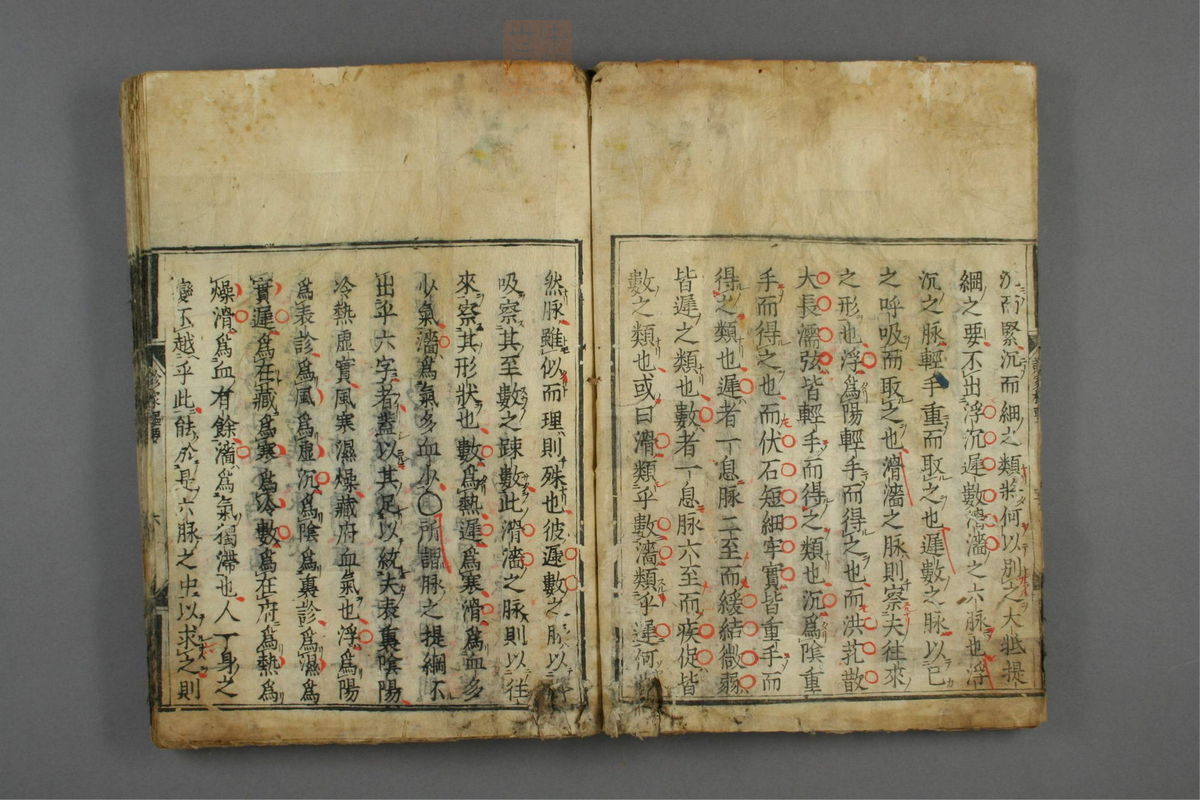 而緊沉而細之類將何以別之大抵提
綱之要不出浮沉遲數滑濇之六脉也浮
沉之脉輕手重而取之也遲數之脉以己
之呼吸而取之也滑濇之脉則察夫往來
之形也浮爲陽輕手而得之也而洪芤散
大長濡弦皆輕手而得之類也沉爲陰重
手而得之也而伏石短細牢實皆重手而
得之類也遲者一息脉二至而緩結微弱
皆遲之類也數者一息脉六至而疾促皆
數之類也或曰滑類乎數濇類乎遲何
然脉雖似而理則殊也彼遲數之脉以
吸察其至數之疎數此滑濇之脉則以往
來察其形狀也數爲熱遲爲寒滑爲血多
少氣濇爲氣多血少〇所謂脉之提綱不
出乎六字者蓋以其足以統夫表裏陰陽
冷熱虛實風寒濕燥藏府血氣也浮爲陽
爲表診爲風爲虛沉爲陰爲裏診爲濕爲
實遲爲在藏爲寒爲冷數爲在府爲熱爲
燥滑爲血有餘濇爲氣獨滯也人一身之
變不越乎此能於是六脉之中以求之則